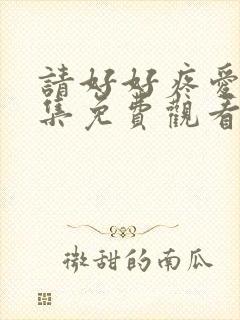 請好好疼愛
集免費觀看
微甜的南瓜